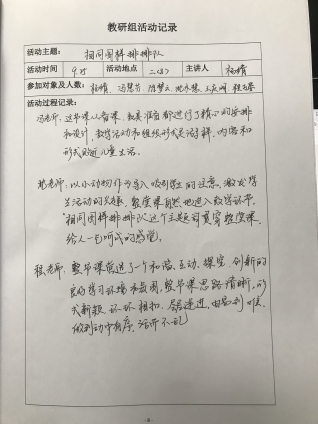 教研组活动记录
活动主题： 相同图样排排队
活动时间 9.25 活动地点 二(3) 主讲人 杨婧
参加对象及人数：杨婧、冯慧芳、陈梦云、
活动过程记录：
冯老师：这节课从备课、教具准备都进行了精心的安排
和设计，教学活动和组织形式多样，内容和
形式贴近儿童生活。
老师：以小动物作为导入吸引学生的注意，激发学
生活动的兴趣，整堂课自然地进入教学环节，
"相同图样排排队"这个主题贯穿整堂课，
给人一气呵成的感觉。
张老师：整节课营造了一个和谐、互动、探究、创新的
良好学习环境和氛围，整节课思路清晰，形
式新颖，环环相扣，层层递进，由易到难，
做到动中有序，活而不乱